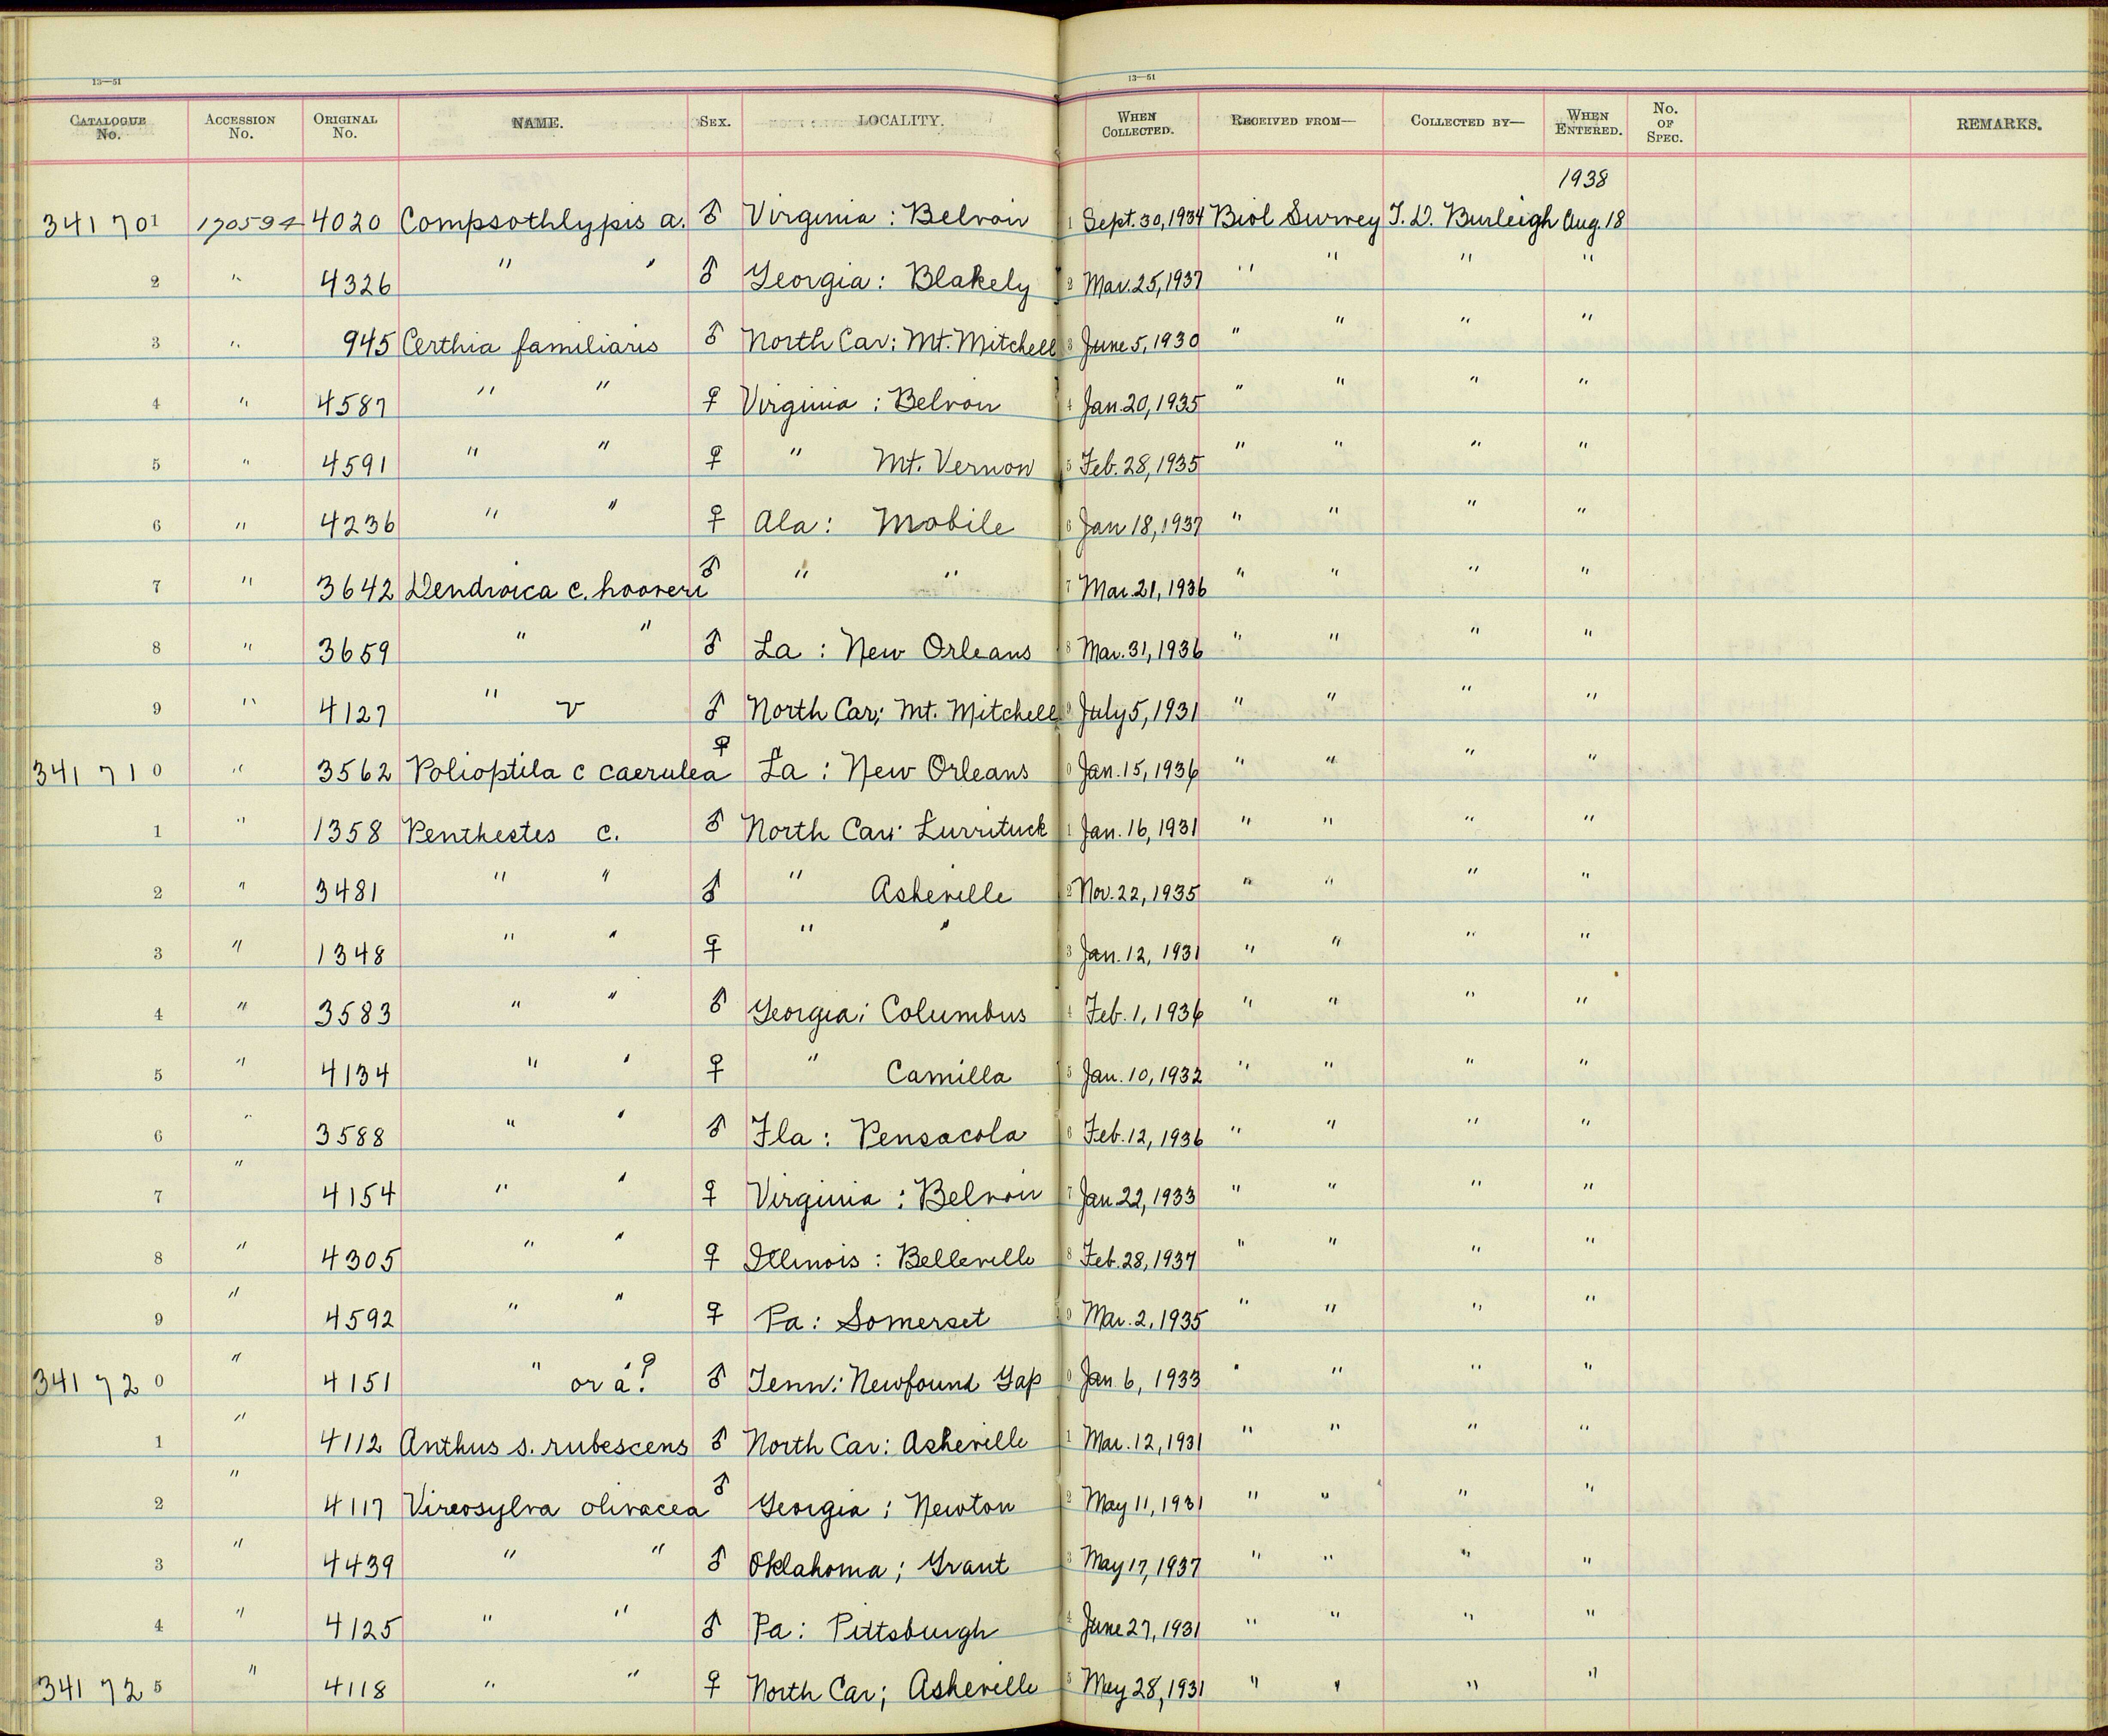 13—51 13—51
CATALOGUE No. ACCESSION No. ORIGINAL No. NAME. SEX. LOCALITY. WHEN COLLECTED. RECEIVED FROM— COLLECTED BY— WHEN ENTERED. No. OF SPEC. REMARKS.
1938
341701 170594 4020 Compsothlypis a. ♂ Virginia : Belvoir 1 Sept. 30, 1934 Biol Survey T. D. Burleigh Aug. 18
2 " 4326 " " ♂ Georgia : Blakely 2 Mar. 25, 1937 " " " "
3 " 945 Certhia familiaris ♂ North Car: Mt. Mitchell 3 June 5, 1930 " " " "
4 " 4587 " " ♀ Virginia : Belvoir 4 Jan. 20, 1935 " " " "
5 " 4591 " " ♀ " Mt. Vernon 5 Feb. 28, 1935 " " " "
6 " 4236 " " ♀ Ala : Mobile 6 Jan 18, 1937 " " " "
7 " 3642 Dendroica c. hooveri ♂ " " 7 Mar. 21, 1936 " " " "
8 " 3659 " " ♂ La : New Orleans 8 Mar. 31, 1936 " " " "
9 " 4127 " v ♂ North Car; Mt. Mitchell 9 July 5, 1931 " " " "
341710 " 3562 Polioptila c caerulea ♀ La : New Orleans 0 Jan. 15, 1936 " " " "
1 " 1358 Penthestes c. ♂ North Car: Currituck 1 Jan. 16, 1931 " " " "
2 " 3481 " " ♂ " Asheville 2 Nov. 22, 1935 " " " "
3 " 1348 " " ♀ " " 3 Jan. 12, 1931 " " " "
4 " 3583 " " ♂ Georgia; Columbus 4 Feb. 1, 1936 " " " "
5 " 4134 " " ♀ " Camilla 5 Jan. 10, 1932 " " " "
6 " 3588 " " ♂ Fla : Pensacola 6 Feb. 12, 1936 " " " "
7 " 4154 " " ♀ Virginia : Belvoir 7 Jan 22, 1933 " " " "
8 " 4305 " " ♀ Illinois : Belleville 8 Feb. 28, 1937 " " " "
9 " 4592 " " ♀ Pa : Somerset 9 Mar. 2, 1935 " " " "
341720 " 4151 " or a? ♂ Tenn: Newfound Gap 0 Jan. 6, 1933 " " " "
1 " 4112 Anthus s. rubescens ♂ North Car: Asheville 1 Mar. 12, 1931 " " " "
2 " 4117 Vireosylva olivacea ♂ Georgia ; Newton 2 May 11, 1931 " " " "
3 " 4439 " " ♂ Oklahoma ; Grant 3 May 17, 1937 " " " "
4 " 4125 " " ♂ Pa : Pittsburgh 4 June 27, 1931 " " " "
341725 " 4118 " " ♀ North Car; Asheville 5 May 28, 1931 " " " "